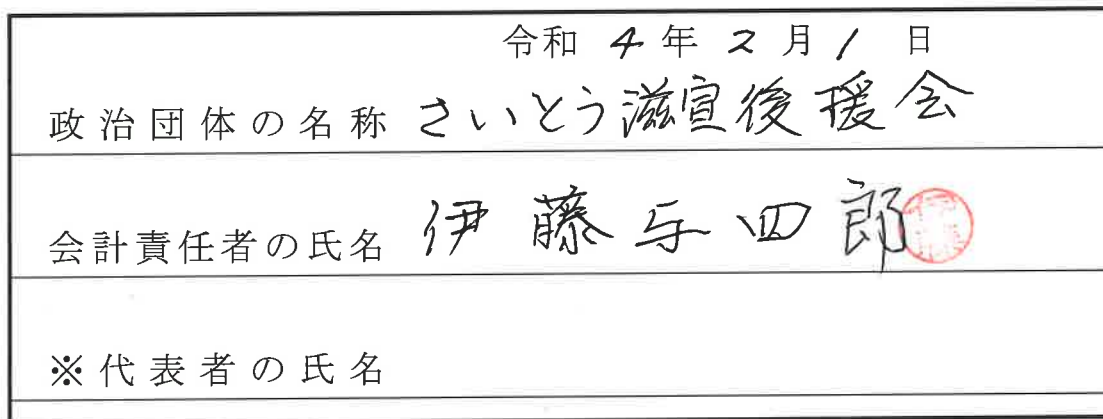 令和 4 年 2 月 1 日
政治団体の名称 さいとう滋宣後援会
会計責任者の氏名 伊藤与四郎
※代表者の氏名